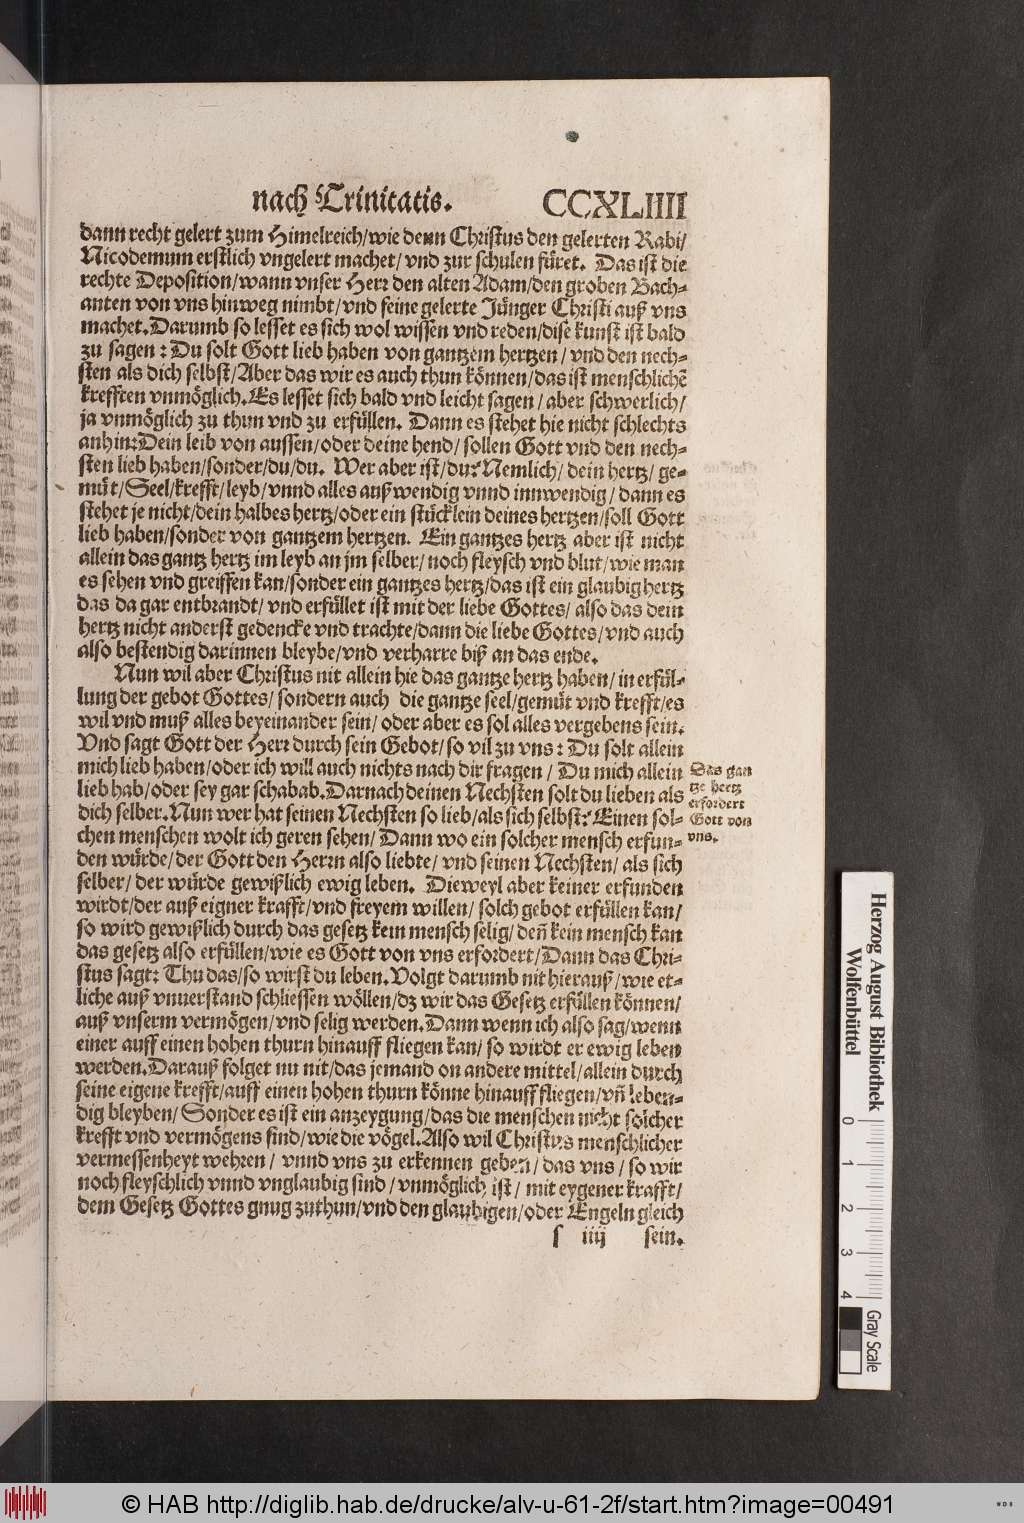 nach Trinitatis. CCXLIIII
dann recht gelert zum Himelreich/wie denn Christus den gelerten Rabi/
Nicodemum erstlich vngelert machet/ vnd zur schulen füret. Das ist die
rechte Deposition/wann vnser Herr den alten Adam/den groben Bach⸗
anten von vns hinweg nimbt/vnd seine gelerte Jünger Christi auß vns
machet.Darumb so lesset es sich wol wissen vnd reden/dise kunst ist bald
zu sagen: Du solt Gott lieb haben von gantzem hertzen/ vnd den nech⸗
sten als dich selbst/Aber das wir es auch thun können/das ist menschlichẽ
krefften vnmöglich.Es lesset sich bald vnd leicht sagen/aber schwerlich/
ja vnmöglich zu thun vnd zu erfüllen. Dann es stehet hie nicht schlechts
anhin:Dein leib von aussen/oder deine hend/sollen Gott vnd den nech⸗
sten lieb haben/sonder/du/du. Wer aber ist/du? Nemlich/dein hertz/ge⸗
müt/Seel/krefft/leyb/vnnd alles außwendig vnnd innwendig/dann es
stehet je nicht/dein halbes hertz/oder ein stücklein deines hertzen/soll Gott
lieb haben/sonder von gantzem hertzen. Ein gantzes hertz aber ist nicht
allein das gantz hertz im leyb an jm selber/noch fleysch vnd blut/wie man
es sehen vnd greiffen kan/sonder ein gantzes hertz/das ist ein glaubig hertz
das da gar entbrandt/ vnd erfüllet ist mit der liebe Gottes/also das dein
hertz nicht anderst gedencke vnd trachte/dann die liebe Gottes/vnd auch
also bestendig darinnen bleybe/vnd verharre biß an das ende.
Nun wil aber Christus nit allein hie das gantze hertz haben/in erfül⸗
lung der gebot Gottes/sondern auch die gantze seel/gemüt vnd krefft/es
wil vnd muß alles beyeinander sein/oder aber es sol alles vergebens sein.
Vnd sagt Gott der Herr durch sein Gebot/so vil zu vns: Du solt allein
mich lieb haben/oder ich will auch nichts nach dir fragen/ Du mich allein
lieb hab/oder sey gar schabab.Darnach deinen Nechsten solt du lieben als
dich selber.Nun wer hat seinen Nechsten so lieb/als sich selbst? Einen sol⸗
chen menschen wolt ich geren sehen/ Dann wo ein solcher mensch erfun⸗
den würde/der Gott den Herrn also liebte/ vnd seinen Nechsten/als sich
selber/der würde gewißlich ewig leben. Dieweyl aber keiner erfunden
wirdt/der auß eigner krafft/vnd freyem willen/solch gebot erfüllen kan/
so wird gewißlich durch das gesetz kein mensch selig/deñ kein mensch kan
das gesetz also erfüllen/wie es Gott von vns erfordert/Dann das Chri⸗
stus sagt: Thu das/so wirst du leben.Volgt darumb nit hierauß/wie et⸗
liche auß vnuerstand schliessen wöllen/dz wir das Gesetz erfüllen können/
auß vnserm vermögen/vnd selig werden.Dann wenn ich also sag/wenn
einer auff einen hohen thurn hinauff fliegen kan/so wirdt er ewig leben
werden.Darauß folget nu nit/das jemand on andere mittel/allein durch
seine eigene krefft/auff einen hohen thurn könne hinauff fliegen/vñ leben⸗
dig bleyben/Sonder es ist ein anzeygung/das die menschen nicht solcher
krefft vnd vermögens sind/wie die vögel.Also wil Christus menschlicher
vermessenheyt wehren/ vnnd vns zu erkennen geben/das vns/so wir
noch fleyschlich vnnd vnglaubig sind/vnmöglich ist/mit eygener krafft/
dem Gesetz Gottes gnug zuthun/vnd den glaubigen/oder Engeln gleich
s iiij sein.
Das gan
tze hertz
erfordert
Gott von
vns.
Herzog August Bibliothek
Wolfenbüttel
0 1 2 3 4
Gray Scale
© HAB http://diglib.hab.de/drucke/alv-u-61-2f/start.htm?image=00491